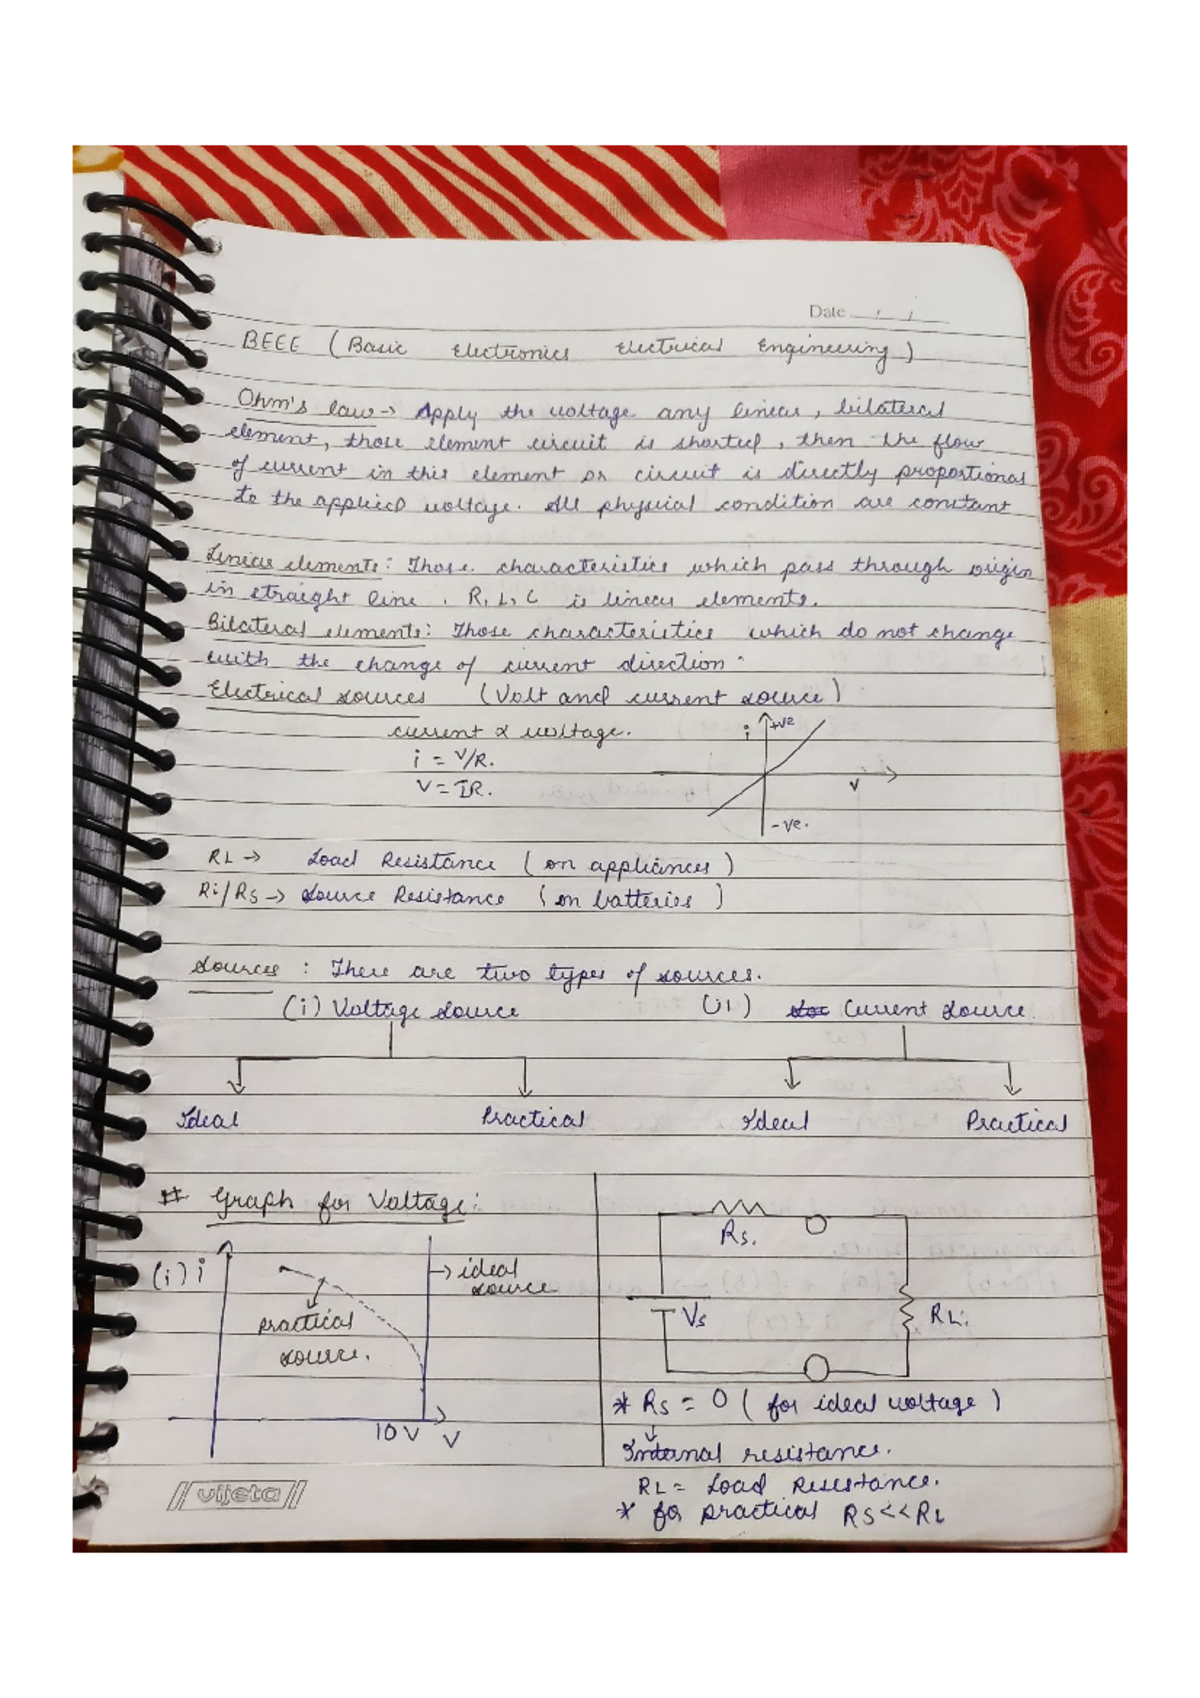 Date
BEEE (Basic Electronics Electrical Engineering)
Ohm's law → Apply the voltage any linear, bilateral
element, those element circuit is shorted, then the flow
of current in this element or circuit is directly proportional
to the applied voltage. All physical condition are constant
Linear elements: Those characteristics which pass through origin
in straight line. R, L, C is linear elements.
Bilateral elements: Those characteristics which do not change
with the change of current direction.
Electrical sources (Volt and current source)
current α voltage.
i = V/R.
V = IR.
i +ve
V
-ve.
RL → Load Resistance (on appliances)
Ri/Rs → Source Resistance (on batteries)
Sources : There are two types of sources.
(i) Voltage source (ii) Current source.
Ideal Practical Ideal Practical
# Graph for Voltage:
(i) i
ideal source
practical source.
10V V
Rs.
Vs
RL.
* Rs = 0 (for ideal voltage)
Internal resistance.
RL = Load Resistance.
* for practical Rs<<RL
vijeta